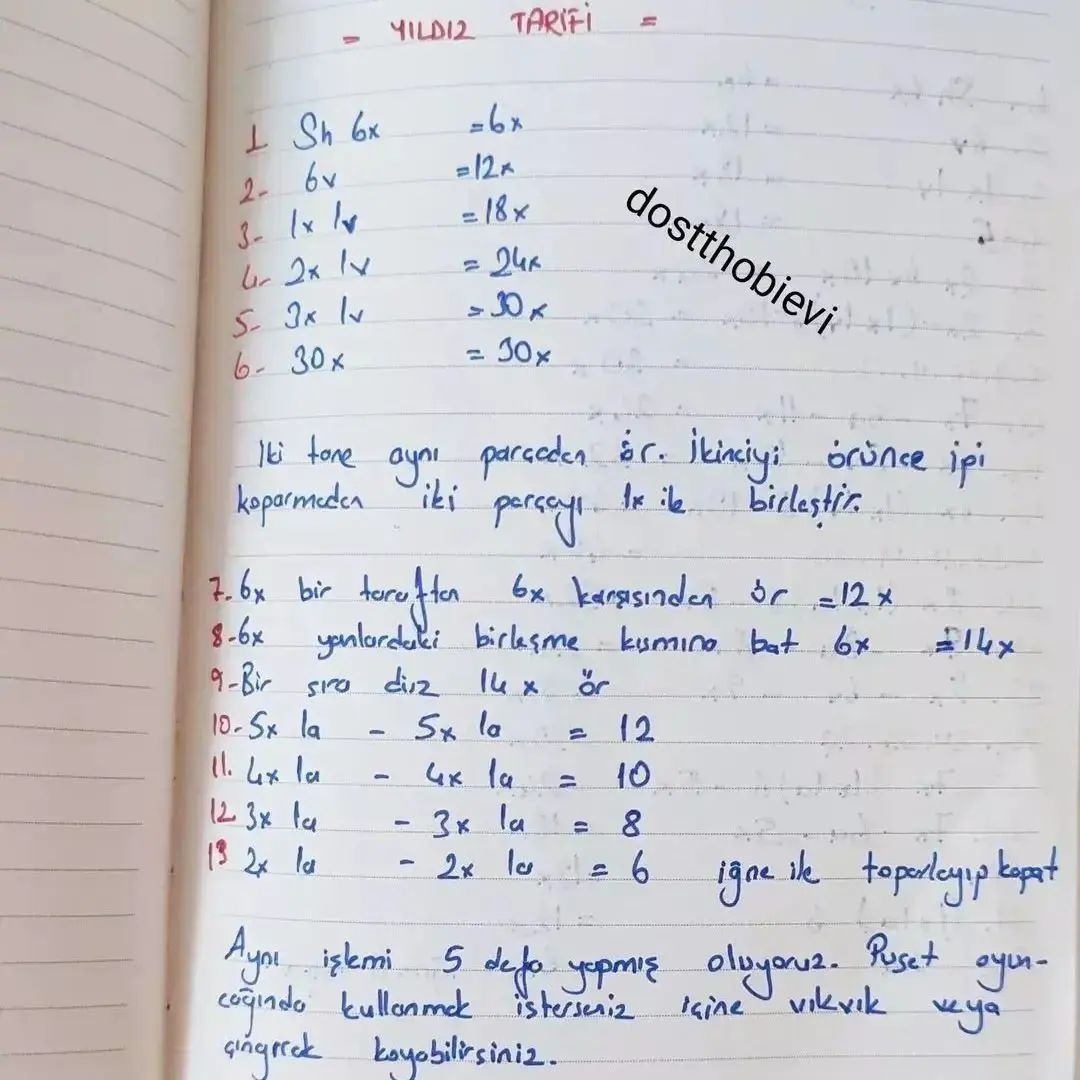 = YILDIZ TARİFİ =
1 Sh 6x =6x
2- 6v =12x
3- 1x 1v =18x
4- 2x 1v = 24x
5- 3x 1v =30x
6- 30x = 30x
dosttho​bievi
İki tane aynı parçadan ör. İkinciyi örünce ipi
koparmadan iki parçayı 1x ile birleştir.
7. 6x bir taraftan 6x karşısından ör =12x
8-6x yanlardaki birleşme kısmına bat 6x =14x
9-Bir sıra düz 14x ör
10-5x 1a - 5x 1a = 12
11. 4x 1a - 4x 1a = 10
12 3x 1a - 3x 1a = 8
13 2x 1a - 2x 1a = 6 iğne ile toparlayıp kapat
Aynı işlemi 5 defa yapmış oluyoruz. Puset oyun-
cağında kullanmak isterseniz içine vıkvık veya
çıngırak koyabilirsiniz.